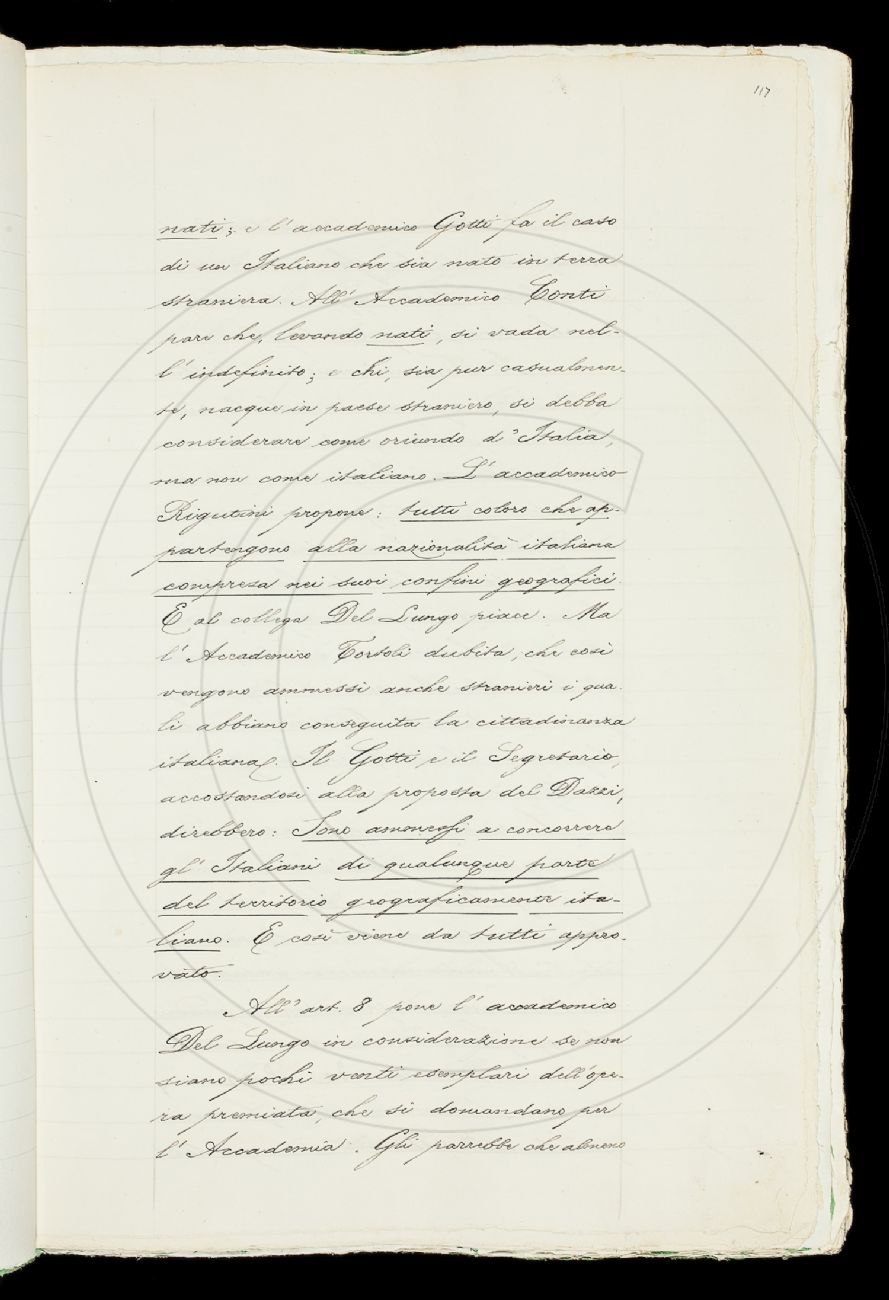 117
nati; e l'accademico Gotti fa il caso
di un Italiano che sia nato in terra
straniera. All'Accademico Conti
pare che, levando nati, si vada nel-
l'indefinito; e chi, sia pur casualmen-
te, nacque in paese straniero, si debba
considerare come oriundo d'Italia,
ma non come italiano. L'accademico
Rigutini propone: tutti coloro che ap-
partengono alla nazionalità italiana
compresa nei suoi confini geografici.
E al collega Del Lungo piace. Ma
l'Accademico Tortoli dubita, che così
vengono ammessi anche stranieri i qua-
li abbiano conseguita la cittadinanza
italiana. Il Gotti e il Segretario,
accostandosi alla proposta del Dazzi,
direbbero: Sono ammessi a concorrere
gl'Italiani di qualunque parte
del territorio geograficamente ita-
liano. E così viene da tutti appro-
vato.
All'art. 8 pone l'accademico
Del Lungo in considerazione se non
siano pochi venti esemplari dell'ope-
ra premiata, che si domandano per
l'Accademia. Gli parrebbe che almeno